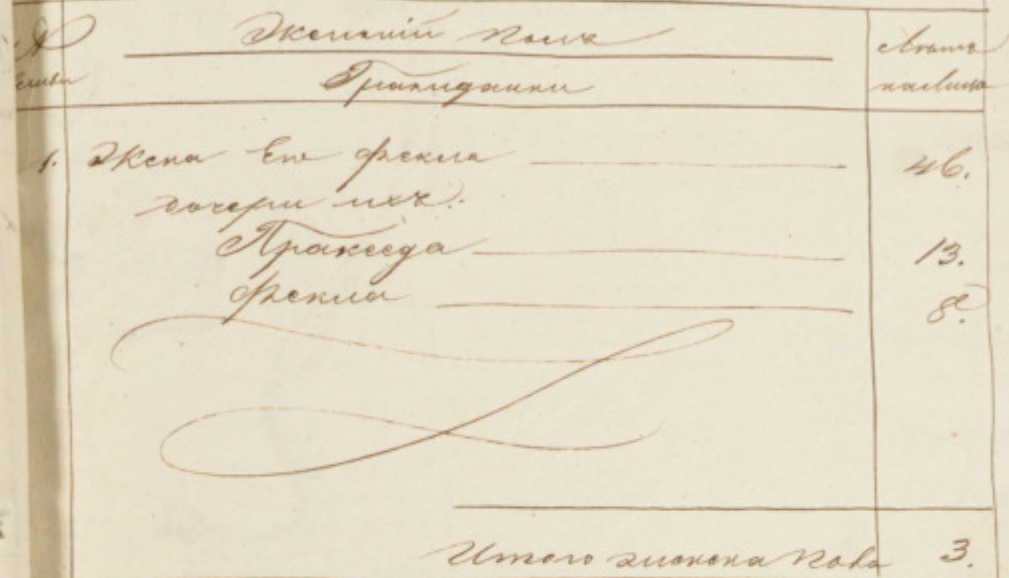 № семьи
Женский полъ
Гражданки
Лѣта на лицо
1. Жена Его Фекла 46.
дочери ихъ:
Пракседа 13.
Фекла 8.
Итого женска пола 3.